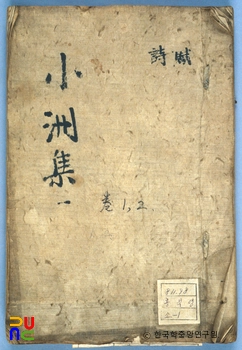 賦
詩
小洲集 一
卷1,2
한국학중앙연구원